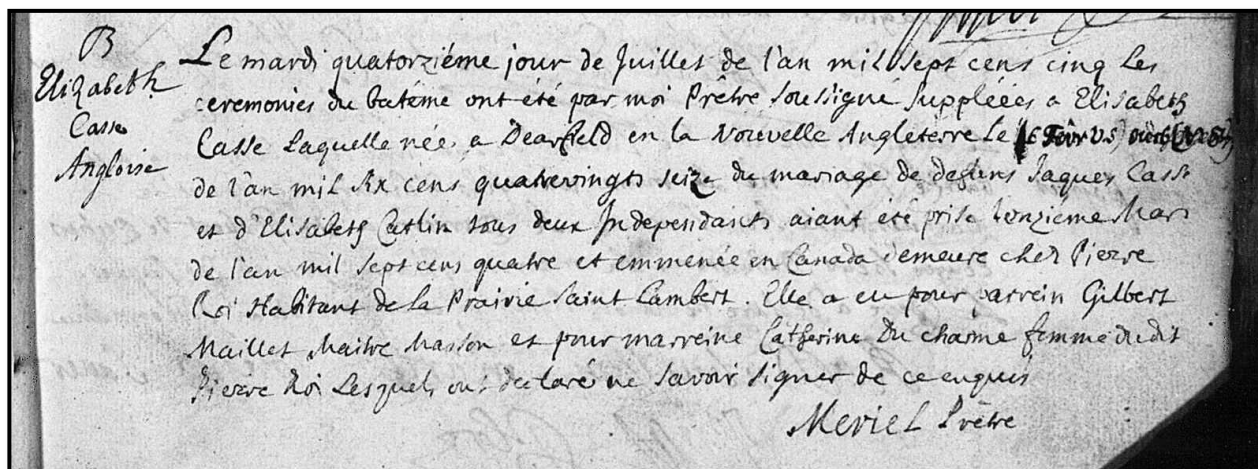 B
Elizabeth
Casse
Angloise
Le mardi quatorziéme jour de Juillet de l'an mil sept cens cinq les
ceremonies du batéme ont été par moi Prêtre soussigné suppléées a Elisabeth
Casse Laquelle née a Dearfield en la Nouvelle Angleterre Le
de l'an mil six cens quatrevingts seize du mariage de defuns Jaques Casse
et d'Elisabeth Catlin tous deux Independants aiant été prise l'onziéme Mars
de l'an mil sept cens quatre et emmenée en Canada demeure chez Pierre
Roi Habitant de la Prairie Saint Lambert. Elle a eu pour parrein Gilbert
Maillet Maitre Masson et pour marreine Catherine Du charme femme du dit
Pierre Roi Lesquels ont declaré ne savoir signer de ce enquis
Meriel Prêtre